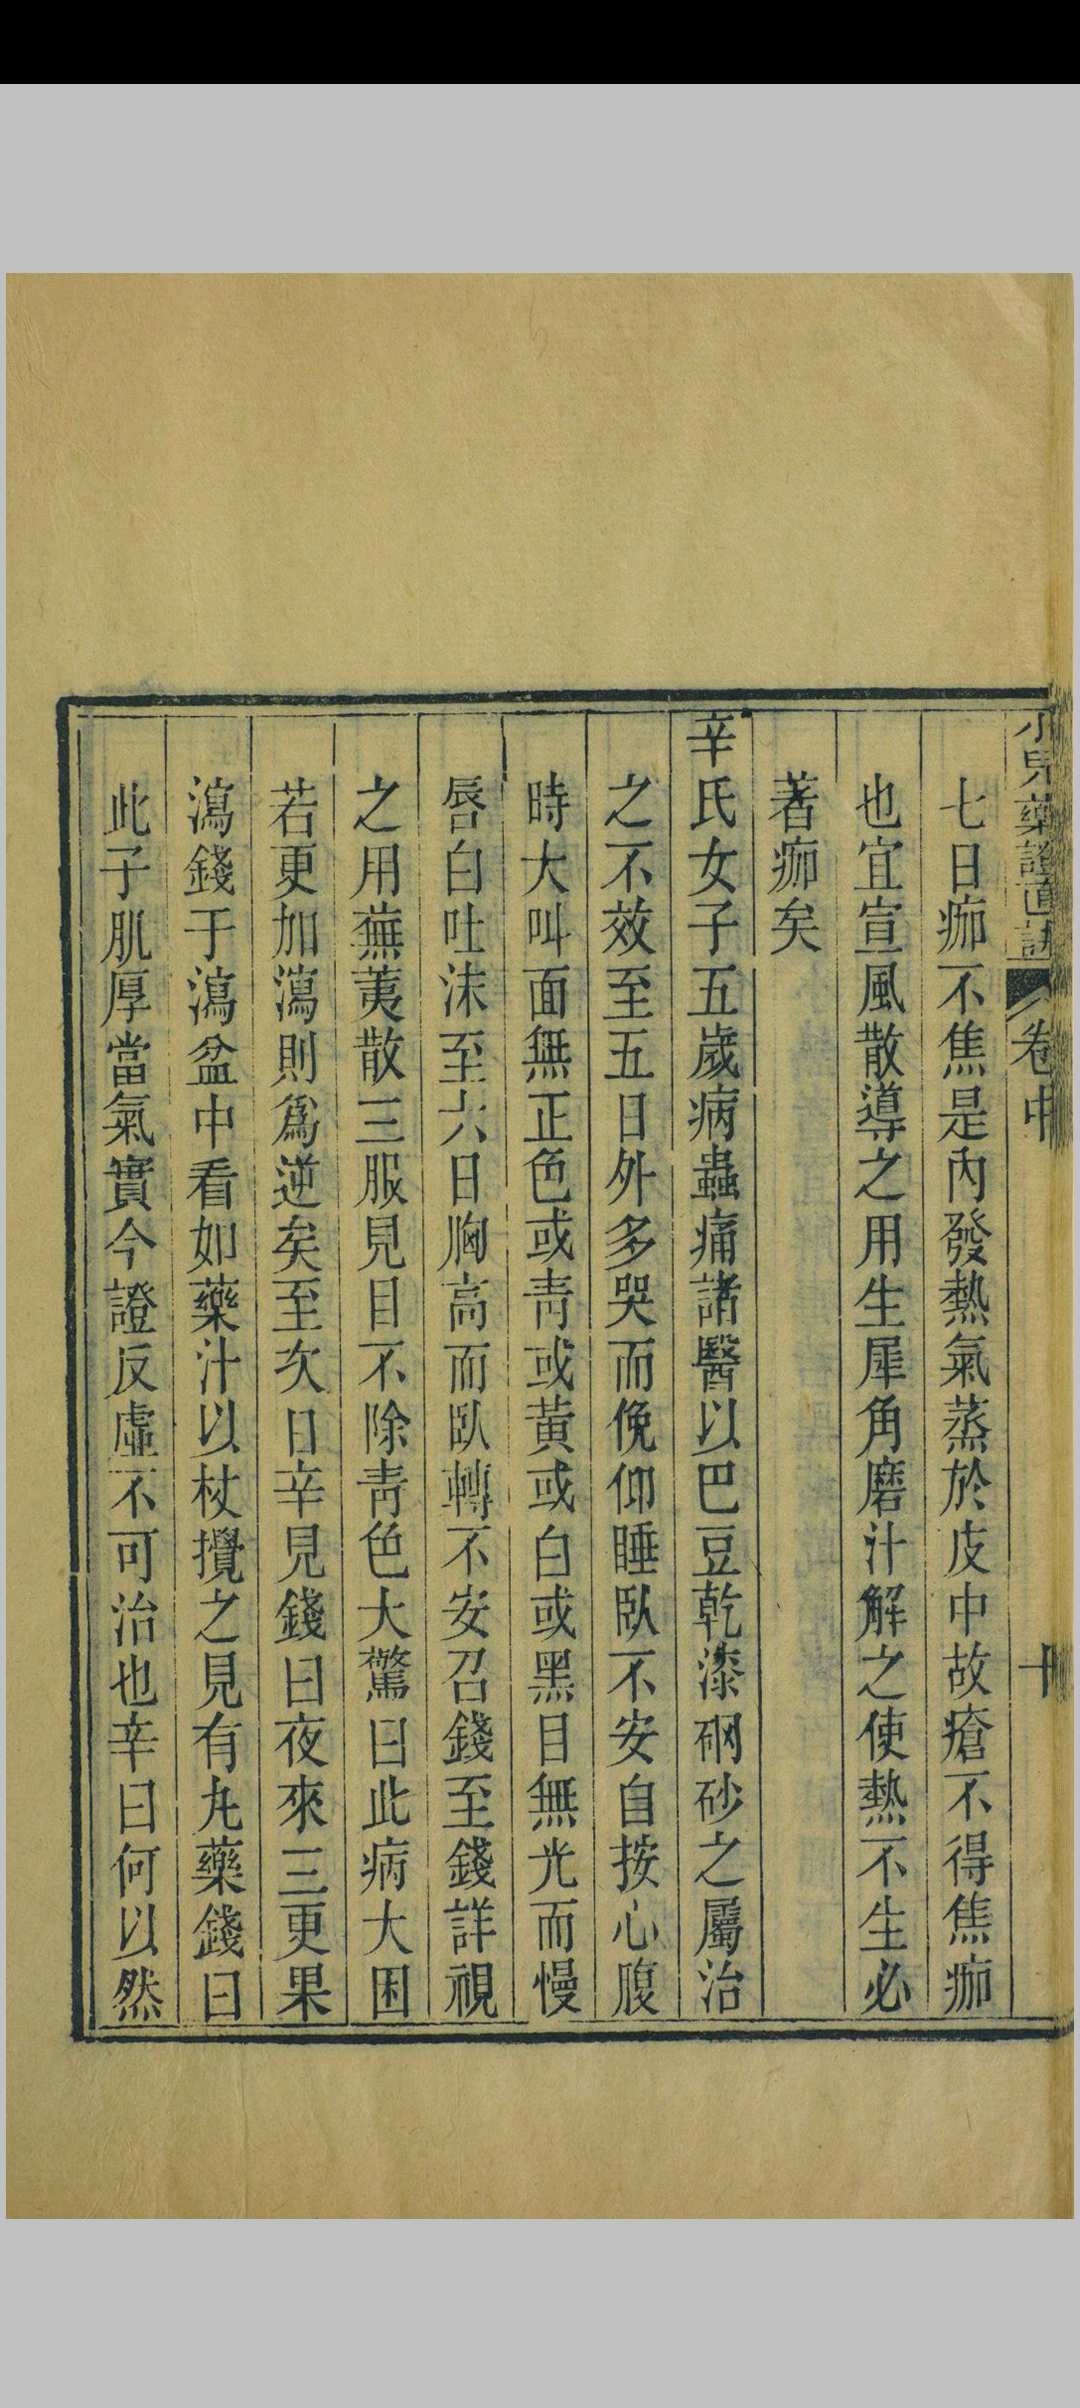 小兒藥證直訣 卷中 十
七日痂不焦是內發熱氣蒸於皮中故瘡不得焦痂
也宜宣風散導之用生犀角磨汁解之使熱不生必
著痂矣
辛氏女子五歲病蟲痛諸醫以巴豆乾漆硇砂之屬治
之不效至五日外多哭而俛仰睡臥不安自按心腹
時大叫面無正色或青或黃或白或黑目無光而慢
唇白吐沫至六日胸高而臥轉不安召錢至錢詳視
之用蕪荑散三服見目不除青色大驚曰此病大困
若更加瀉則爲逆矣至次日辛見錢曰夜來三更果
瀉錢于瀉盆中看如藥汁以杖攪之見有丸藥錢曰
此子肌厚當氣實今證反虛不可治也辛曰何以然